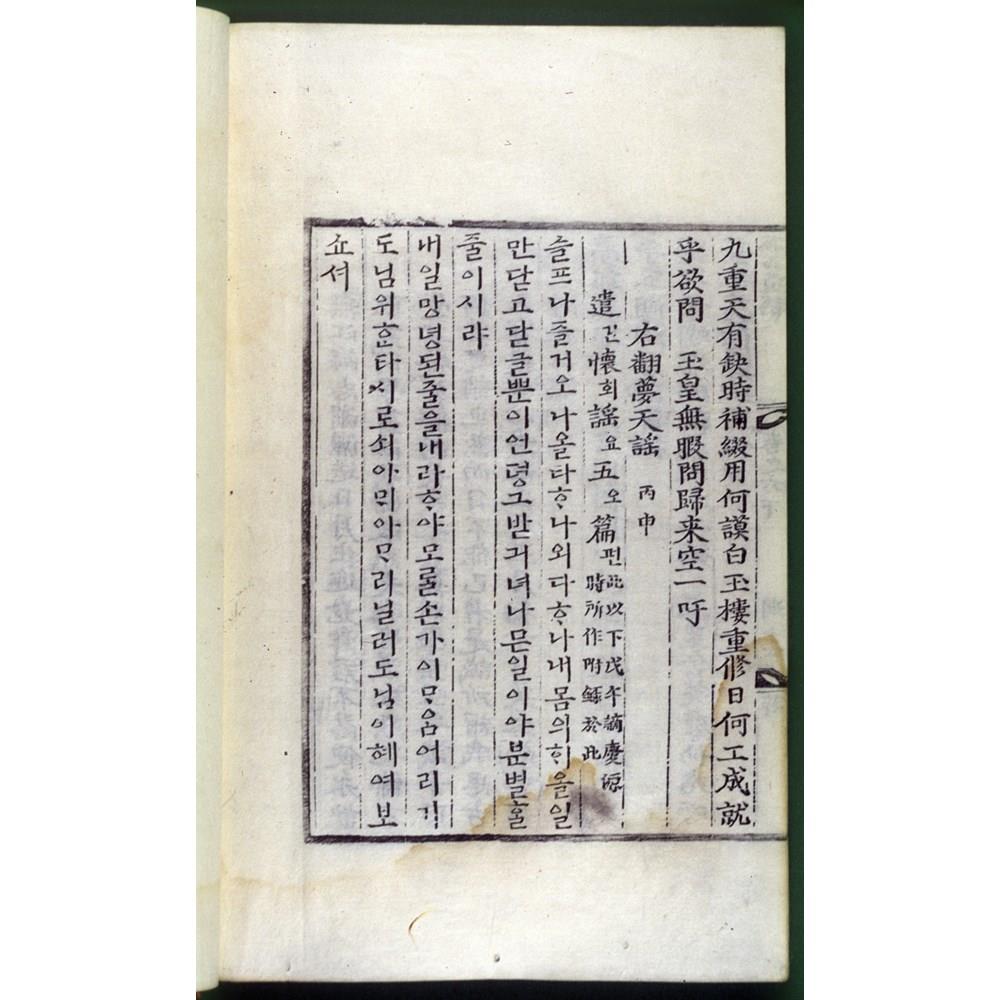 九重天有缺時補綴用何謨白玉樓重修日何工成就
乎欲問 玉皇無暇問歸来空一吁
右翻夢天謠 丙申
遣견懷회謠요五오篇편 此以下戊午謫慶源時所作附錄於此
슬프나즐거오나올타ᄒᆞ나외다ᄒᆞ나내몸의ᄒᆡ올일
만닫고닫글ᄲᅮᆫ이언뎡그받긔녀나믄일이야분별ᄒᆞᆯ
줄이시랴
내일망녕된줄을내라ᄒᆞ야모ᄅᆞᆯ손가이ᄆᆞᄋᆞᆷ어리기
도님위ᄒᆞᆫ타시로쇠아ᄆᆡ아ᄆᆞ리닐러도님이혜여보
쇼셔